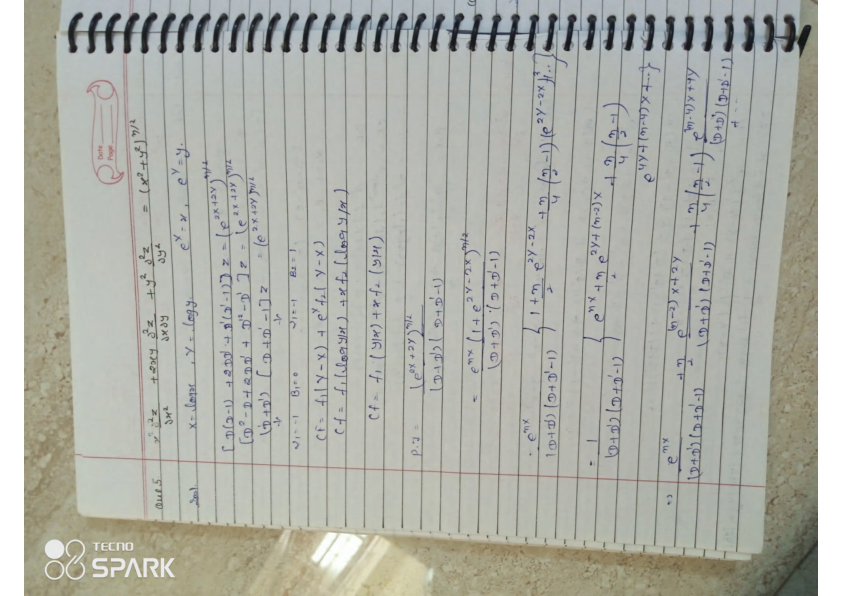 Date
Page
Que.5 x² ∂²z/∂x² + 2xy ∂²z/∂x∂y + y² ∂²z/∂y² = (x²+y²)^n/2
Sol. x = logx, Y = logy. e^x = x, e^Y = y.
[D(D-1) + 2DD' + D'(D'-1)] z = (e^2x+2Y)^n/2
[D²-D + 2DD' + D'² - D'] z = (e^2x+2Y)^n/2
(D+D') [D+D'-1] z = (e^2x+2Y)^n/2
B1=0 B2=1
CF = f1(Y-x) + e^x f2(Y-x)
CF = f1(log Y/x) + x f2(log Y/x)
CF = f1(Y/x) + x f2(Y/x)
P.I = (e^2x+2Y)^n/2 / (D+D')(D+D'-1)
= e^nx (1+e^2Y-2x)^n/2 / (D+D')·(D+D'-1)
= e^nx / (D+D')(D+D'-1) { 1 + n/2 e^2Y-2x + n/4 (n/2 -1)(e^2Y-2x)² + ... }
= 1/(D+D')(D+D'-1) { e^nx + n/2 e^2Y+(n-2)x + n/4 (n/2 -1)
e^4Y+(n-4)x + ... }
=> e^nx / (D+D')(D+D'-1) + n/2 e^(n-2)x+2Y / (D+D')(D+D'-1) + n/4 (n/2 -1) e^(n-4)x+4Y / (D+D')(D+D'-1)
+ ...
TECNO
SPARK